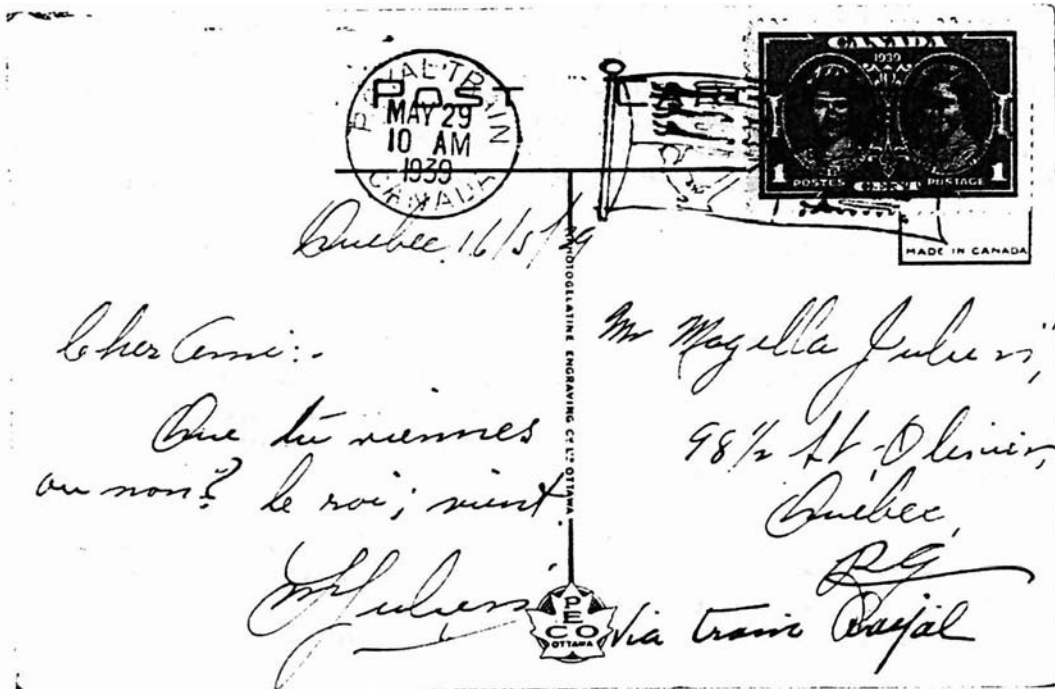 ROYAL TRAIN
POST
MAY 29
10 AM
1939
CANADA
CANADA
1939
1 POSTES CENT POSTAGE 1
MADE IN CANADA
Québec, 16/5/39
Cher Ami:-
Que tu viennes
ou non? le roi; vient.
M Julien
PHOTOGELATINE ENGRAVING CO LTD OTTAWA
PECO
OTTAWA
Mr Magella Julien,
98 1/2 St-Olivier,
Québec,
P.Q.
Via train Royal